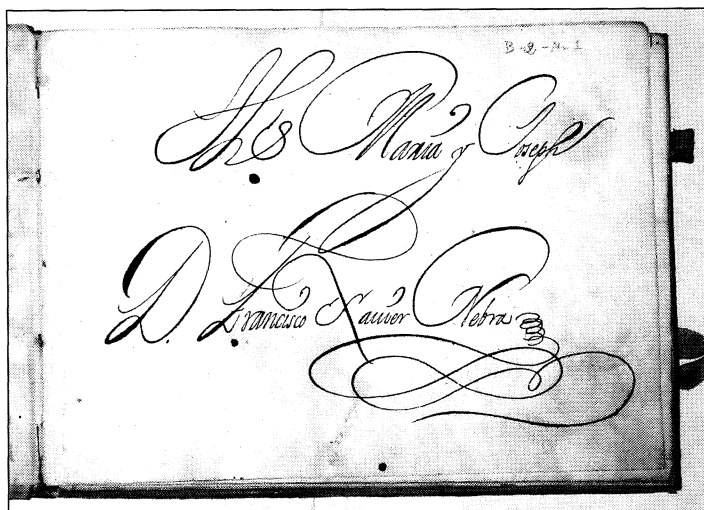 B-2-M.1
Jhs Maria y Joseph
D. Francisco Xauier Nebra